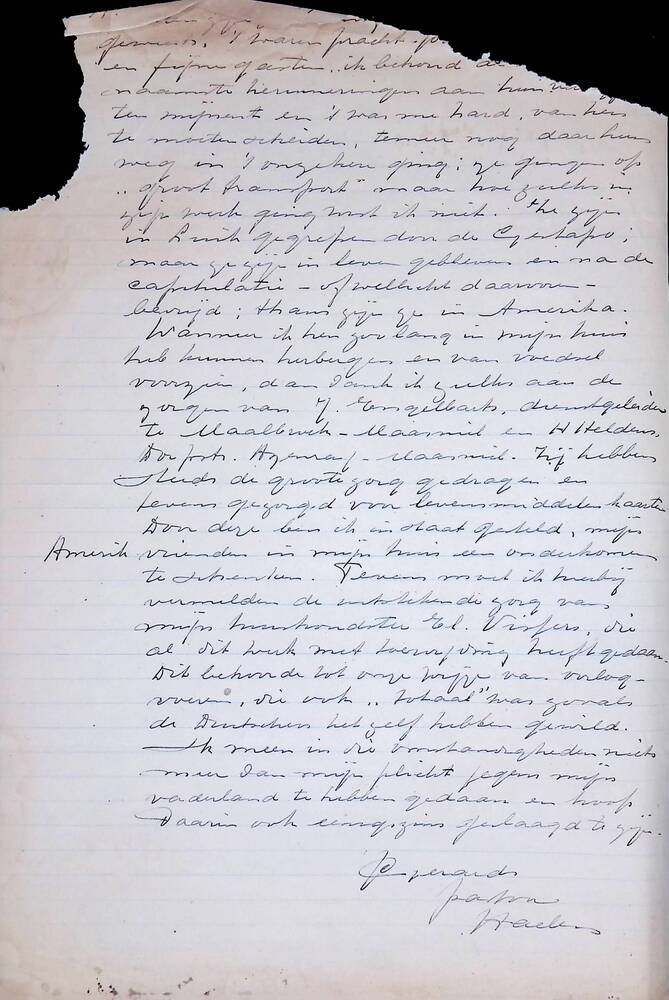 geweest, 't waren pracht
en fijne gasten, ik behoud
naamste herinneringen aan hun
ten mijnent en 't was me hard, van hen
te moeten scheiden, temeer nog daar hun
weg in 't onzekere ging; ze gingen op
„groot transport" maar hoe zulks in
zijn werk ging wist ik niet. Ze zijn
in Luik gegrepen door de Gestapo;
maar ze zijn in leven gebleven en na de
capitulatie – of wellicht daarvoor –
bevrijd; thans zijn ze in Amerika.
Wanneer ik hen zoo lang in mijn huis
heb kunnen herbergen en van voedsel
voorzien, dan dank ik zulks aan de
zorgen van J. Engelbarts, dienstgeleider
te Maalbroek – Maasniel en H Heldens,
Dorpstr. Asenray – Maasniel. Zij hebben
steeds de groote zorg gedragen en
tevens gezorgd voor levensmiddelenkaarten
Door deze ben ik in staat gesteld, mijn
Amerik vrienden in mijn huis een onderkomen
te schenken. Tevens moet ik hierbij
vermelden de uitstekende zorg van
mijn huishoudster El. Vissers, die
al dit werk met toewijding heeft gedaan.
Dit behoorde tot onze wijze van oorlog-
voeren, die ook „totaal" was zooals
de Duitschers het zelf hebben gewild.
Ik meen in die omstandigheden niets
meer dan mijn plicht jegens mijn
vaderland te hebben gedaan en hoop
daarin ook eenigszins geslaagd te zijn.
pastoor
Haelen